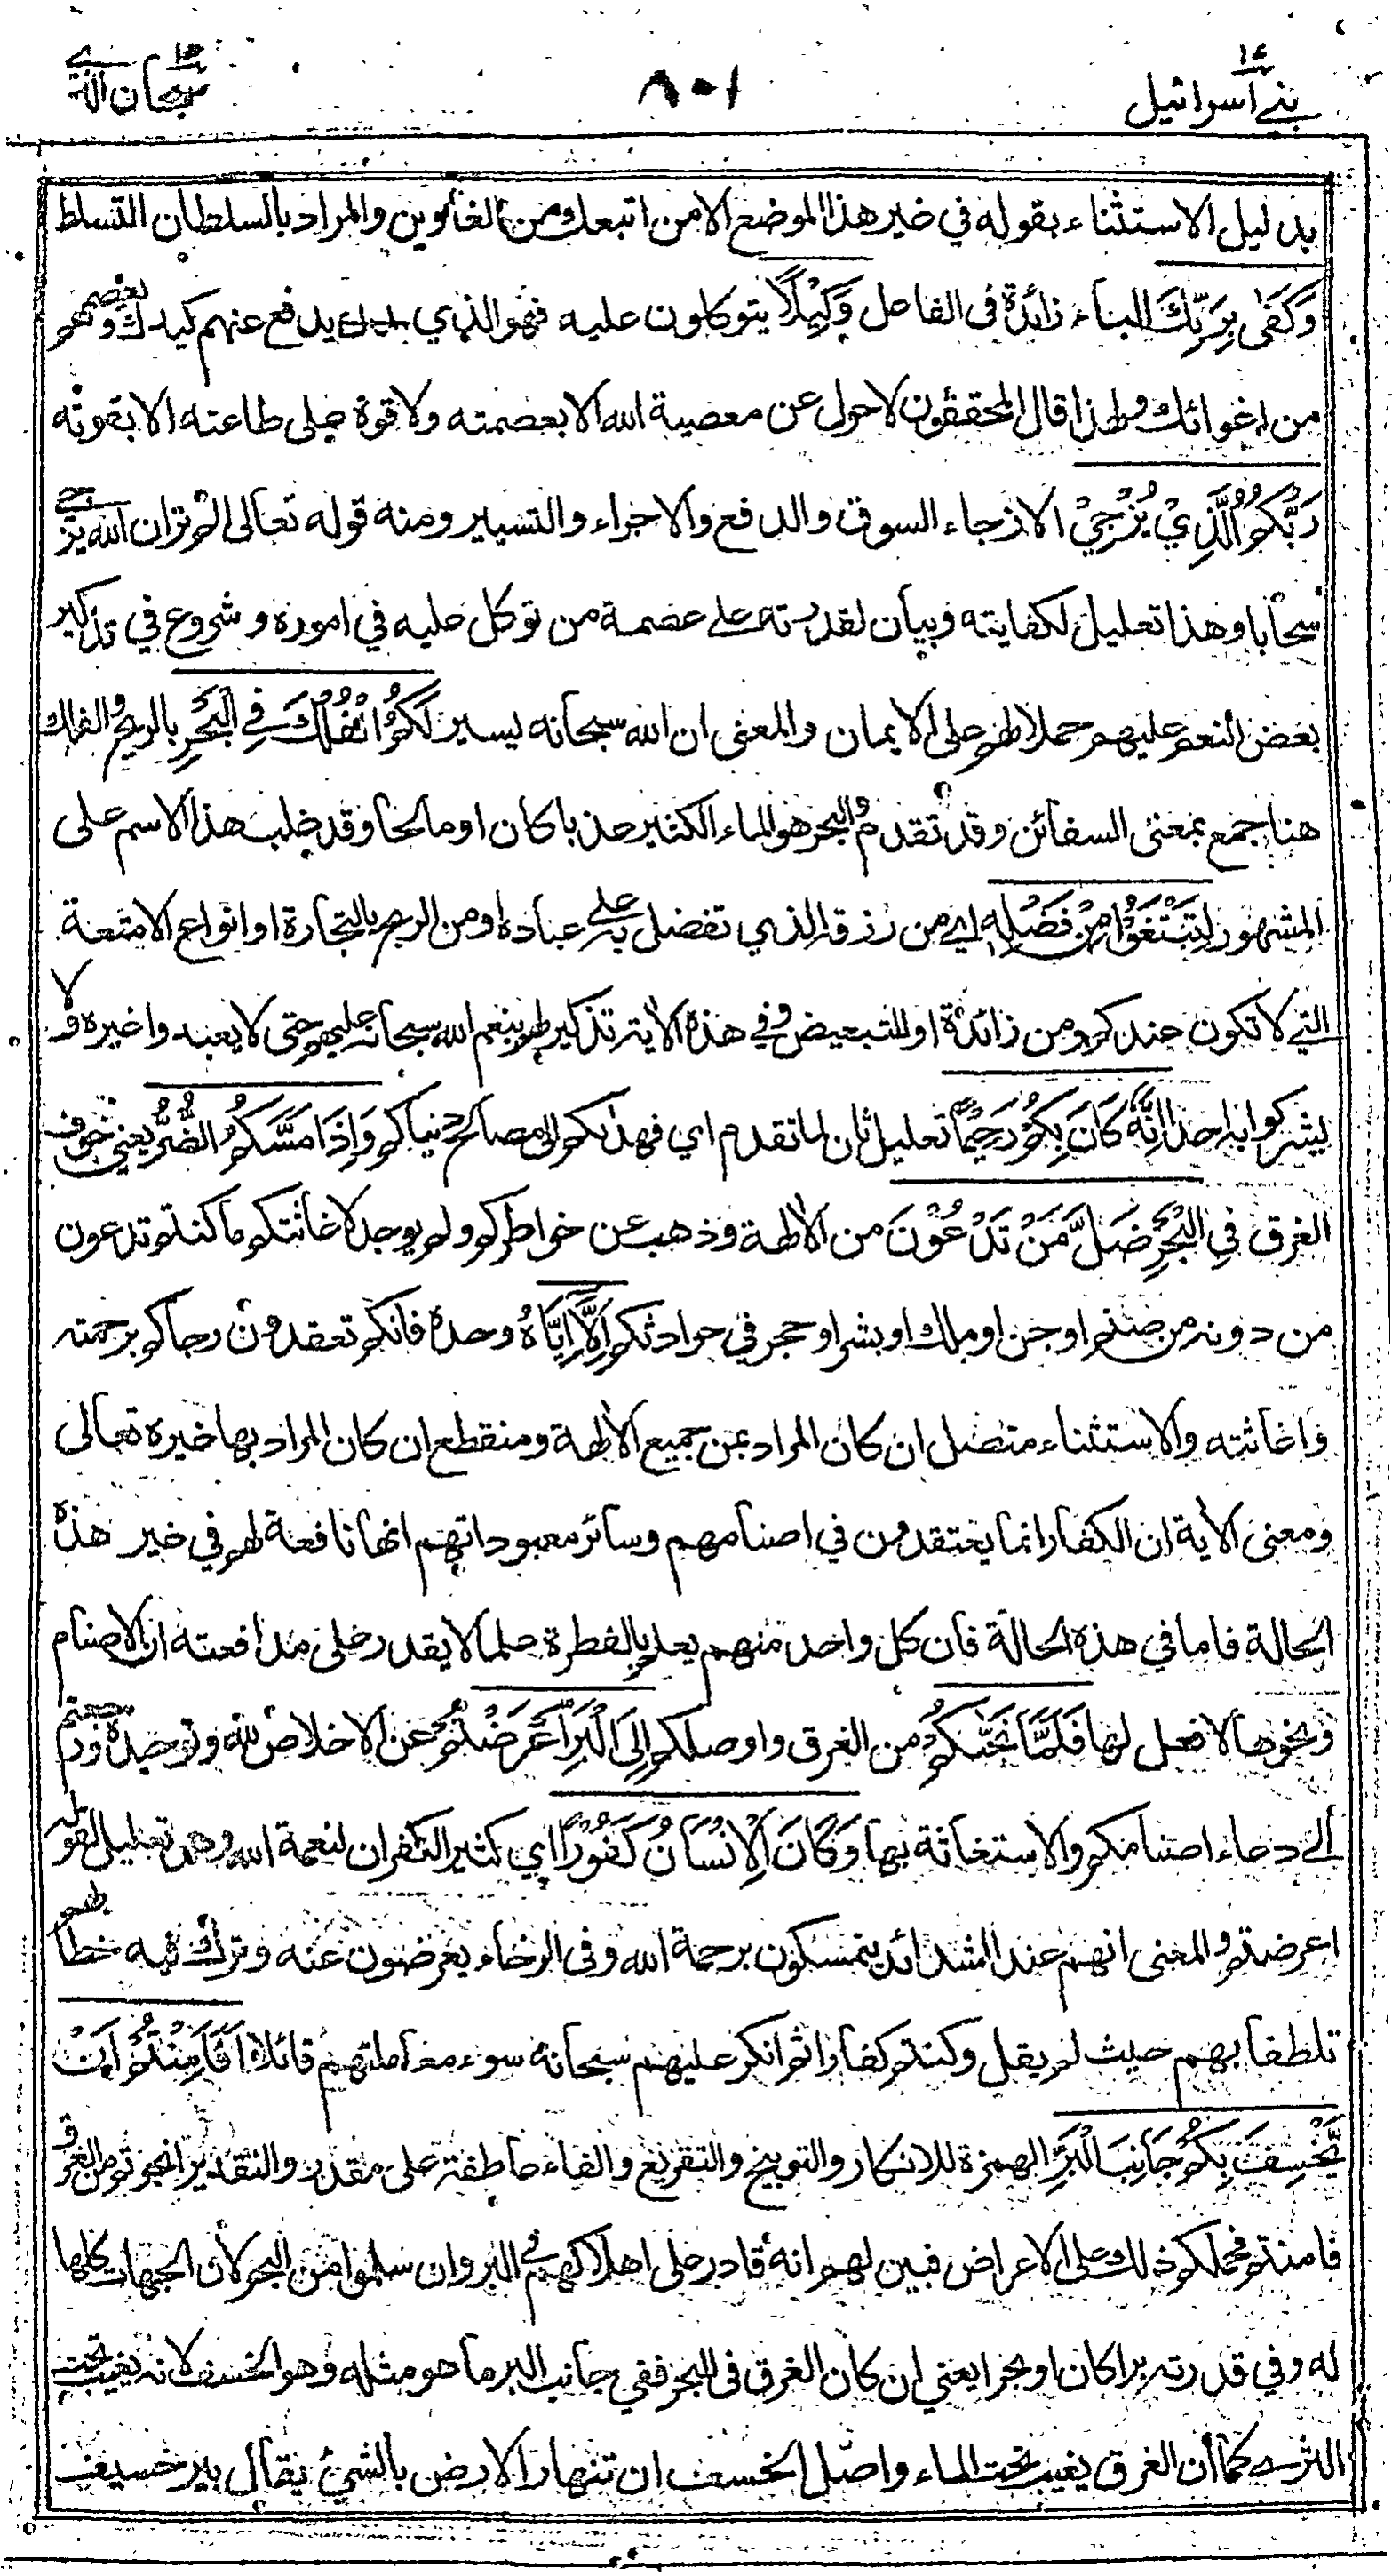 بني اسرائيل ١٧
٨٠١
سبحان الذي ١٥
بدليل الاستثناء بقوله في غير هذا الموضع الا من اتبعك من الغاوين والمراد بالسلطان التسلط
وَكَفٰى بِرَبِّكَ الباء زائدة في الفاعل وَكِيْلًا يتوكلون عليه فهو الذي يدفع عنهم كيدك ويعصمهم
من اغوائك ولهذا قال المحققون لا حول عن معصية الله الا بعصمته ولا قوة على طاعته الا بقوته
رَبُّكُمُ الَّذِيْ يُزْجِيْ الازجاء السوق والدفع والاجراء والتسيير ومنه قوله تعالى الم تر ان الله يزجي
سحابا وهذا تعليل لكفايته وبيان لقدرته على عصمة من توكل عليه في اموره وشروع في تذكير
بعض النعم عليهم حملا لهم على الايمان والمعنى ان الله سبحانه يسير لَكُمُ الْفُلْكَ فِي الْبَحْرِ بالريح والفلك
هنا جمع بمعنى السفائن وقد تقدم والبحر هو الماء الكثير عذبا كان او مالحا وقد غلب هذا الاسم على
المشهور لِتَبْتَغُوْا مِنْ فَضْلِه اي من رزقه الذي تفضل به على عباده او من الربح بالتجارة او انواع الامتعة
التي لا تكون عندكم ومن زائدة او للتبعيض وفي هذه الاية تذكير لهم بنعم الله سبحانه عليهم حتى لا يعبدوا غيره ولا
يشركوا به احدا اِنَّهٗ كَانَ بِكُمْ رَحِيْمًا تعليل ثان لما تقدم اي فهداكم الى مصالح دنياكم وَاِذَا مَسَّكُمُ الضُّرُّ يعني خوف
الغرق فِي الْبَحْرِ ضَلَّ مَنْ تَدْعُوْنَ من الالهة وذهب عن خواطركم ولم يوجد لاغاثتكم ما كنتم تدعون
من دونه من صنم او جن او ملك او بشر او حجر في حوادثكم اِلَّا اِيَّاهُ وحده فانكم تعقدون رجاكم برحمته
واغاثته والاستثناء متصل ان كان المراد بمن جميع الالهة ومنقطع ان كان المراد بها غيره تعالى
ومعنى الاية ان الكفار انما يعتقدون في اصنامهم وسائر معبوداتهم انها نافعة لهم في غير هذه
الحالة فاما في هذه الحالة فان كل واحد منهم يعلم بالفطرة علما لا يقدر على مدافعته ان الاصنام
ونحوها لا فعل لها فَلَمَّا نَجّٰىكُمْ من الغرق واوصلكم اِلَى الْبَرِّ اَعْرَضْتُمْ عن الاخلاص لله وتوحيده ورجعتم
الى دعاء اصنامكم والاستغاثة بها وَكَانَ الْاِنْسَانُ كَفُوْرًا اي كثير الكفران لنعمة الله وهو تعليل لقوله
اعرضتم والمعنى انهم عند الشدائد يتمسكون برحمة الله وفي الرخاء يعرضون عنه وترك فيه خطابهم
تلطفا بهم حيث لم يقل وكنتم كفارا ثم انكر عليهم سبحانه سوء معاملتهم قائلا اَفَاَمِنْتُمْ اَنْ
يَّخْسِفَ بِكُمْ جَانِبَ الْبَرِّ الهمزة للانكار والتوبيخ والتقريع والفاء عاطفة على مقدر والتقدير انجوتم من الغرق
فامنتم فحملكم ذلك على الاعراض فبين لهم انه قادر على اهلاكهم في البر وان سلموا من البحر لان الجهات كلها
له وفي قدرته برا كان او بحرا يعني ان كان الغرق في البحر ففي جانب البر ما هو مثله وهو الخسف لانه يغيب تحت
الثرى كما أن الغرق يغيب تحت الماء واصل الخسف ان تنهار الارض بالشيء يقال بير خسيف